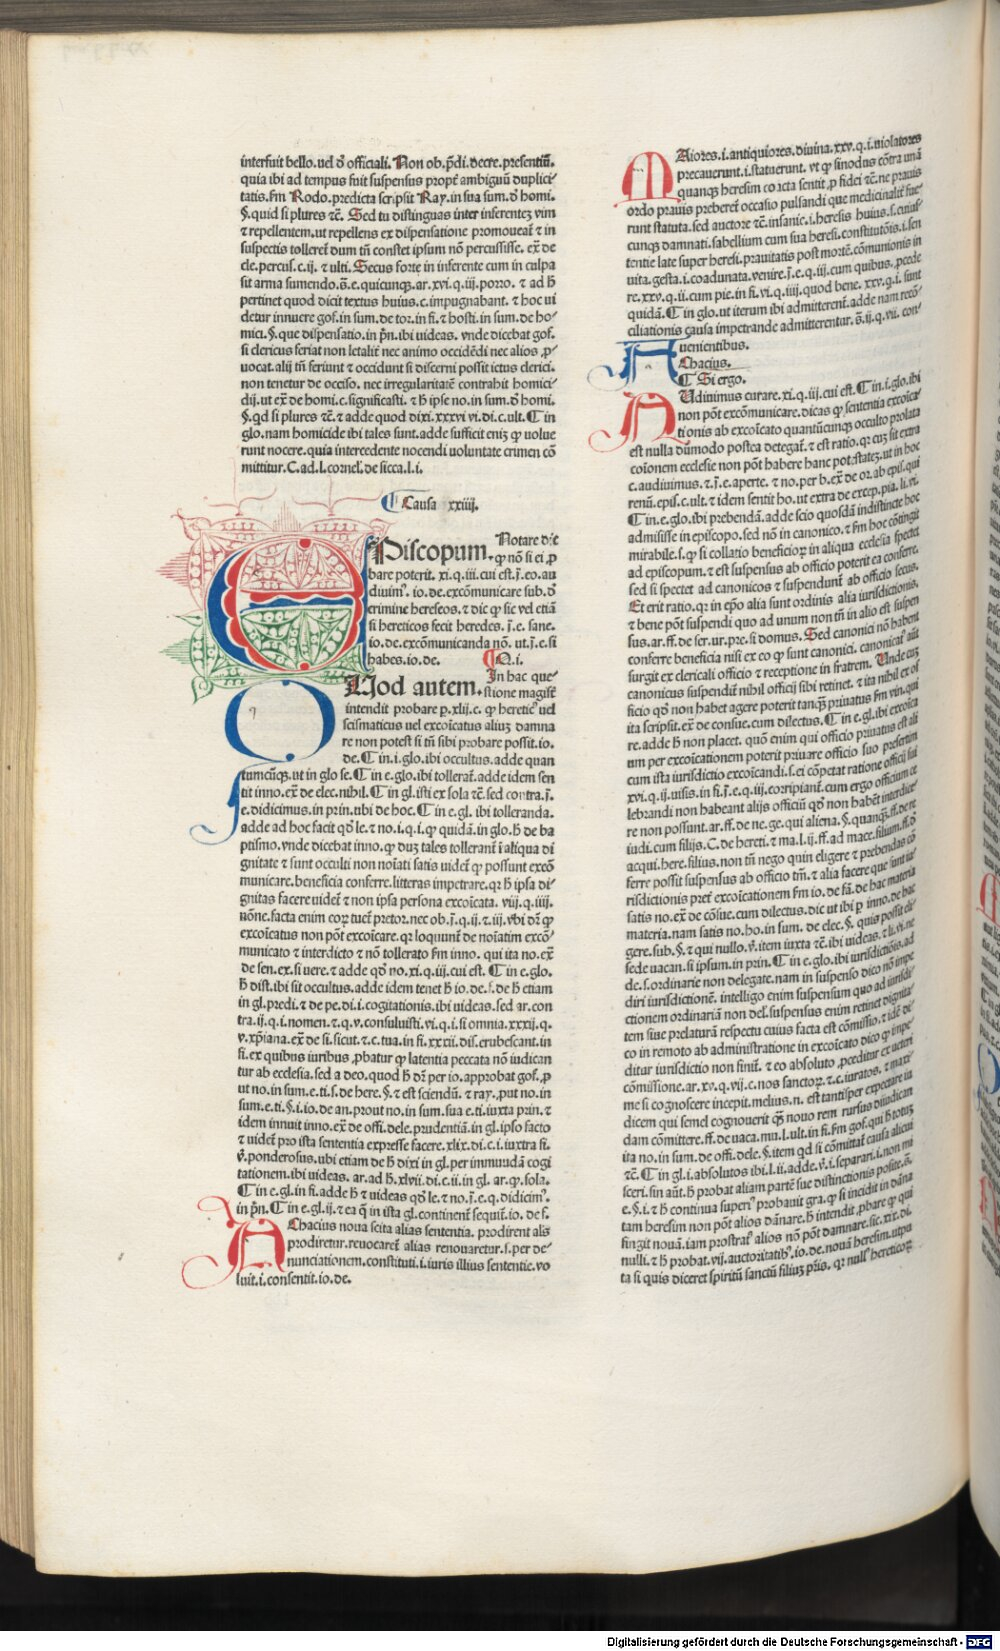 interfuit bello. uel d̄ officiali. Non ob. p̄di. decre. presentiū.
quia ibi ad tempus fuit suspensus propt̄ ambiguū duplici
tatis. s̄m Rodo. predicta scripsit Ray. in sua sum. d̄ homi.
§. quid si plures ⁊c̄. Sed tu distinguas inter inferentez vim
⁊ repellentem. ut repellens ex dispensatione promoueat̄ ⁊ in
suspectis tolleret̄ dum tn̄ constet ipsum nō percussisse. ex̄ de
cle. percus. c. ij. ⁊ ulti. Secus forte in inferente cum in culpa
sit arma sumendo. s̄. e. quicunqꝫ. ar. xvi. q. iij. porro. ⁊ ad h̄
pertinet quod dicit textus huius. c. impugnabant. ⁊ hoc ui
detur innuere gof. in sum. de tor. in fi. ⁊ hosti. in sum. de ho
mici. §. que dispensatio. in p̄n. ibi uideas. vnde dicebat gof.
si clericus feriat non letalit̄ nec animo occidēdi nec alios ꝓ
uocat. alij tn̄ feriunt ⁊ occidunt si discerni possit ictus clerici.
non tenetur de occiso. nec irregularitatē contrahit homici
dij. ut ex̄ de homi. c. significasti. ⁊ h̄ ipse no. in sum. d̄ homi.
§. qd̄ si plures ⁊c̄. ⁊ adde quod dixi. xxxvi vi. di. c. ult. ¶ in
glo. nam homicide ibi tales sunt. adde sufficit eniꝫ ꝙ uolue
runt nocere. quia intercedente nocendi uoluntate crimen cō
mittitur. C. ad. l. cornel̄. de sicca. l. i.
¶ Causa xxiiij.
EPiscopum. Notare d̄ e
ꝙ nō si ei ꝓ
bare poterit. xi. q. iii. cui est. j̄. eo. au
diuimꝰ. io. de. excōmunicare sub. d̄
crimine hereseos. ⁊ dic ꝙ sic vel etiā
si hereticos fecit heredes. j̄. e. sane.
io. de. excōmunicanda nō. ut. j̄. e. si
habes. io. de. ¶ Q. i.
QUod autem. In hac que
stione magist̄
intendit probare p̱. xlij. c. ꝙ hereticꝰ uel
scismaticus uel excoīcatus aliuꝫ damna
re non potest si tn̄ sibi probare possit. io.
de. ¶ in. i. glo. ibi occultus. adde quan
tumcūqꝫ. ut in glo se. ¶ in e. glo. ibi tollerat̄. adde idem sen
tit inno. ex̄ de elec. nihil. ¶ in gl. isti ex sola ⁊c̄. sed contra. j̄.
e. didicimus. in prin. ubi de hoc. ¶ in e. gl. ibi tolleranda.
adde ad hoc facit qd̄ le. ⁊ no. i. q. i. ꝙ quidā. in glo. h̄ de ba
ptismo. vnde dicebat inno. ꝙ duꝫ tales tollerant̄ ī aliqua di
gnitate ⁊ sunt occulti non noīati satis uidet̄ ꝙ possunt excō
municare. beneficia conferre. litteras impetrare. qꝛ h̄ ipsa di
gnitas facere uidet̄ ⁊ non ipsa persona excoīcata. viij. q. iiij.
nōne. facta enim coꝝ tuet̄ pretor. nec ob. j̄. q. ij. ⁊ iij. vbi dr̄ ꝙ
excoīcatus non pōt excoīcare. qꝛ loquunt̄ de noīatim excō
municato ⁊ interdicto ⁊ nō tollerato s̄m inno. qui ita no. ex̄
de sen. ex. si uere. ⁊ adde qd̄ no. xi. q. iij. cui est. ¶ in e. glo.
h̄ dist. ibi sit occultus. adde idem tenet h̄ io. de. s̄. de h̄ etiam
in gl. predi. ⁊ de pe. di. i. cogitationis. ibi uideas. sed ar. con
tra. ij. q. i. nomen. ⁊ q. v. consuluisti. vi. q. i. si omnia. xxxij. q.
v. xp̄iana. ex̄ de si. sicut. ⁊ c. tua. in fi. xxxii. dis. erubescant. in
fi. ex quibus iuribus ꝓbatur ꝙ latentia peccata nō iudican
tur ab ecclesia. sed a deo. quod h̄ dn̄ per io. approbat gof. ꝓ
ut no. in sum. e. ti. s̄. de here. §. ⁊ est sciendū. ⁊ ray. ꝓut no. in
sum. e. ti. §. i. io. de an. prout no. in sum. sua e. ti. iuxta prin. ⁊
idem innuit inno. ex̄ de offi. dele. prudentiā. in gl. ipso facto
⁊ uidet̄ pro ista sententia expresse facere. xlix. di. c. i. iuxtra fi.
v̄. ponderosus. ubi etiam de h̄ dixi in gl. per immuudā cogi
tationem. ibi uideas. ar. ad h̄. xlvii. di. c. ii. in gl. ar. ꝙ. sola.
¶ in e. gl. in fi. adde h̄ ⁊ uideas qd̄ le. ⁊ no. j̄. e. q. didicimꝰ.
in p̄n. ¶ in e. gl. ij. ⁊ ea q̄ in ista gl. continent̄ sequūt̄. io. de s.
AChacius noua scita alias sententia. prodirent als̄
prodiretur. reuocarēt alias renouaretur. s. per de
nunciationem. constituti. i. iuris illius sententie. vo
luit. i. consentit. io. de.
MAiores. i. antiquiores. diuina. xxv. q. i. uiolatores
precauerunt. i. statuerunt. vt ꝙ sinodus cōtra unā
quanqꝫ heresim co acta sentit. ꝓ fidei ⁊c̄. ne prauis
ordo prauis preberet̄ occasio pulsandi que medicinalit̄ fue
runt statuta. sed auctore ⁊c̄. insanie. i. heresis huius. s. cuius
cunqꝫ damnati. sabellium cum sua heresi. constitutōis. i. sen
tentie late super heresi. prauitatis post mortē. cōmunionis in
uita. gesta. i. coadunata. venire. j̄. e. q. iij. cum quibus. ꝓcede
re. xxv. q. ii. cum pie. in fi. vi. q. iiij. quod bene. xxv. q. i. sunt
quidā. ¶ in glo. ut iterum ibi admitterent̄. adde nam recō
ciliationis causa impetrande admitterentur. s̄. ij. q. vii. con
uenientibus.
AChacius.
¶ Si ergo.
AUdiuimus curare. xi. q. iij. cui est. ¶ in. i. glo. ibi
non pōt excōmunicare. dicas ꝙ sententia excoīca
tionis ab excoīcato quantūcunqꝫ occulto prolata
est nulla dūmodo postea detegat̄. ⁊ est ratio. qꝛ cuꝫ sit extra
coīonem ecclesie non pōt habere hanc potestateꝫ. ut in hoc
c. audiuimus. ⁊. j̄. e. aperte. ⁊ no. per b. ex̄ de or. ab epis. qui
renū. epis. c. ult. ⁊ idem sentit ho. ut extra de excep. pia. li. vi.
¶ in. e. glo. ibi prebendā. adde scio quosdā indistincte hoc
admisisse in episcopo. sed nō in canonico. ⁊ s̄m hoc cōtingit
mirabile. s. ꝙ si collatio beneficioꝝ in aliqua ecclesia spectet
ad episcopum. ⁊ est suspensus ab officio poterit ea conferre.
sed si spectet ad canonicos ⁊ suspendunt̄ ab officio secus.
Et erit ratio. qꝛ in ep̄o alia sunt ordinis alia iurisdictionis.
⁊ bene pōt suspendi quo ad unum non tn̄ in alio est suspen
sus. ar. ff. de ser. ur. pre. si domus. Sed canonici nō habent
conferre beneficia nisi ex eo ꝙ sunt canonici. canonicatꝰ aūt
surgit ex clericali officio ⁊ receptione in fratrem. Unde cuꝫ
canonicus suspendit̄ nihil officij sibi retinet. ⁊ ita nihil ex of
ficio qd̄ non habet agere poterit tanqꝫ priuatus s̄m vin. qui
ita scripsit. ex̄ de consue. cum dilectus. ¶ in e. gl. ibi excoīca
re. adde h̄ non placet. quō enim qui officio priuatus est ali
um per excoīcationem poterit priuare officio suo presertim
cum ista iurisdictio excoīcandi. s. ei cōpetat ratione officij sui
xvi. q. ij. uisis. in fi. j̄. e. q. iij. corripiant̄. cum ergo officium ce
lebrandi non habeant alijs officiū qd̄ non habēt interdice
re non possunt. ar. ff. de ne. ge. qui aliena. §. quanqꝫ. ff. de re
iudi. cum filijs. C. de hereti. ⁊ ma. l. ij. ff. ad mace. filium. ff. d̄
acqui. here. filius. non tn̄ nego quin eligere ⁊ prebendas cō
ferre possit suspensus ab officio tm̄. ⁊ alia facere que sunt iu
risdictionis pret̄ excoīcationem s̄m io. de fā. de hac materia
satis no. ex̄ de cōsue. cum dilectus. dic ut ibi ꝑ inno. de hac
materia. nam satis no. ho. in sum. de elec. §. quis possit eli
gere. sub. §. ⁊ qui nullo. v̄. item iuxta ⁊c̄. ibi uideas. ⁊ li. vi. ne
sede uacan. si ipsum. in prin. ¶ in e. glo. ibi iurisdictiōis. ad
de. s. ordinarie non delegate. nam in suspenso dico nō impe
diri iurisdictionē. intelligo enim suspensum quo ad iurisdi
ctionem ordinariā non del̄. suspensus enim retinet dignita
tem siue prelaturā respectu cuius facta est cōmissio. ⁊ idē di
co in remoto ab administratione in excoīcato dico ꝙ impe
ditur iurisdictio non finit̄. ⁊ eo absoluto ꝓceditur ex ueteri
cōmissione. ar. xv. q. vij. c. nos sanctoꝝ. ⁊ c. iuratos. ⁊ maxi
me si cognoscere incepit. melius. n. est tantisper expectare iu
dicem qui semel cognouerit qꝫ nouo rem rursus diiudican
dam cōmittere. ff. de uaca. mu. l. ult. in fi. s̄m gof. qui h̄ totuꝫ
ita no. in sum. de offi. dele. §. item qd̄ si cōmittat̄ causa alicui
⁊c̄. ¶ in gl. i. absolutos ibi. l. ii. adde. v̄. i. separari. i. non mi
sceri. sin aūt. h̄ probat aliam partē sue distinctionis posite. s̄.
e. §. i. ⁊ h̄ continua superiꝰ probauit gra. ꝙ si incidit in dāna
tam heresim non pōt alios dānare. h̄ intendit ꝓbare ꝙ qui
fingit nouā. iam prostratꝰ alios nō pōt damnare. sic. xix. di.
nulli. ⁊ h̄ probat. vij. auctoritatibꝰ. io. de. nouā heresim. utpu
ta si quis diceret spiritū sanctū filiuꝫ p̄ris. qꝛ nullꝰ hereticoꝝ
Digitalisierung gefördert durch die Deutsche Forschungsgemeinschaft - DFG